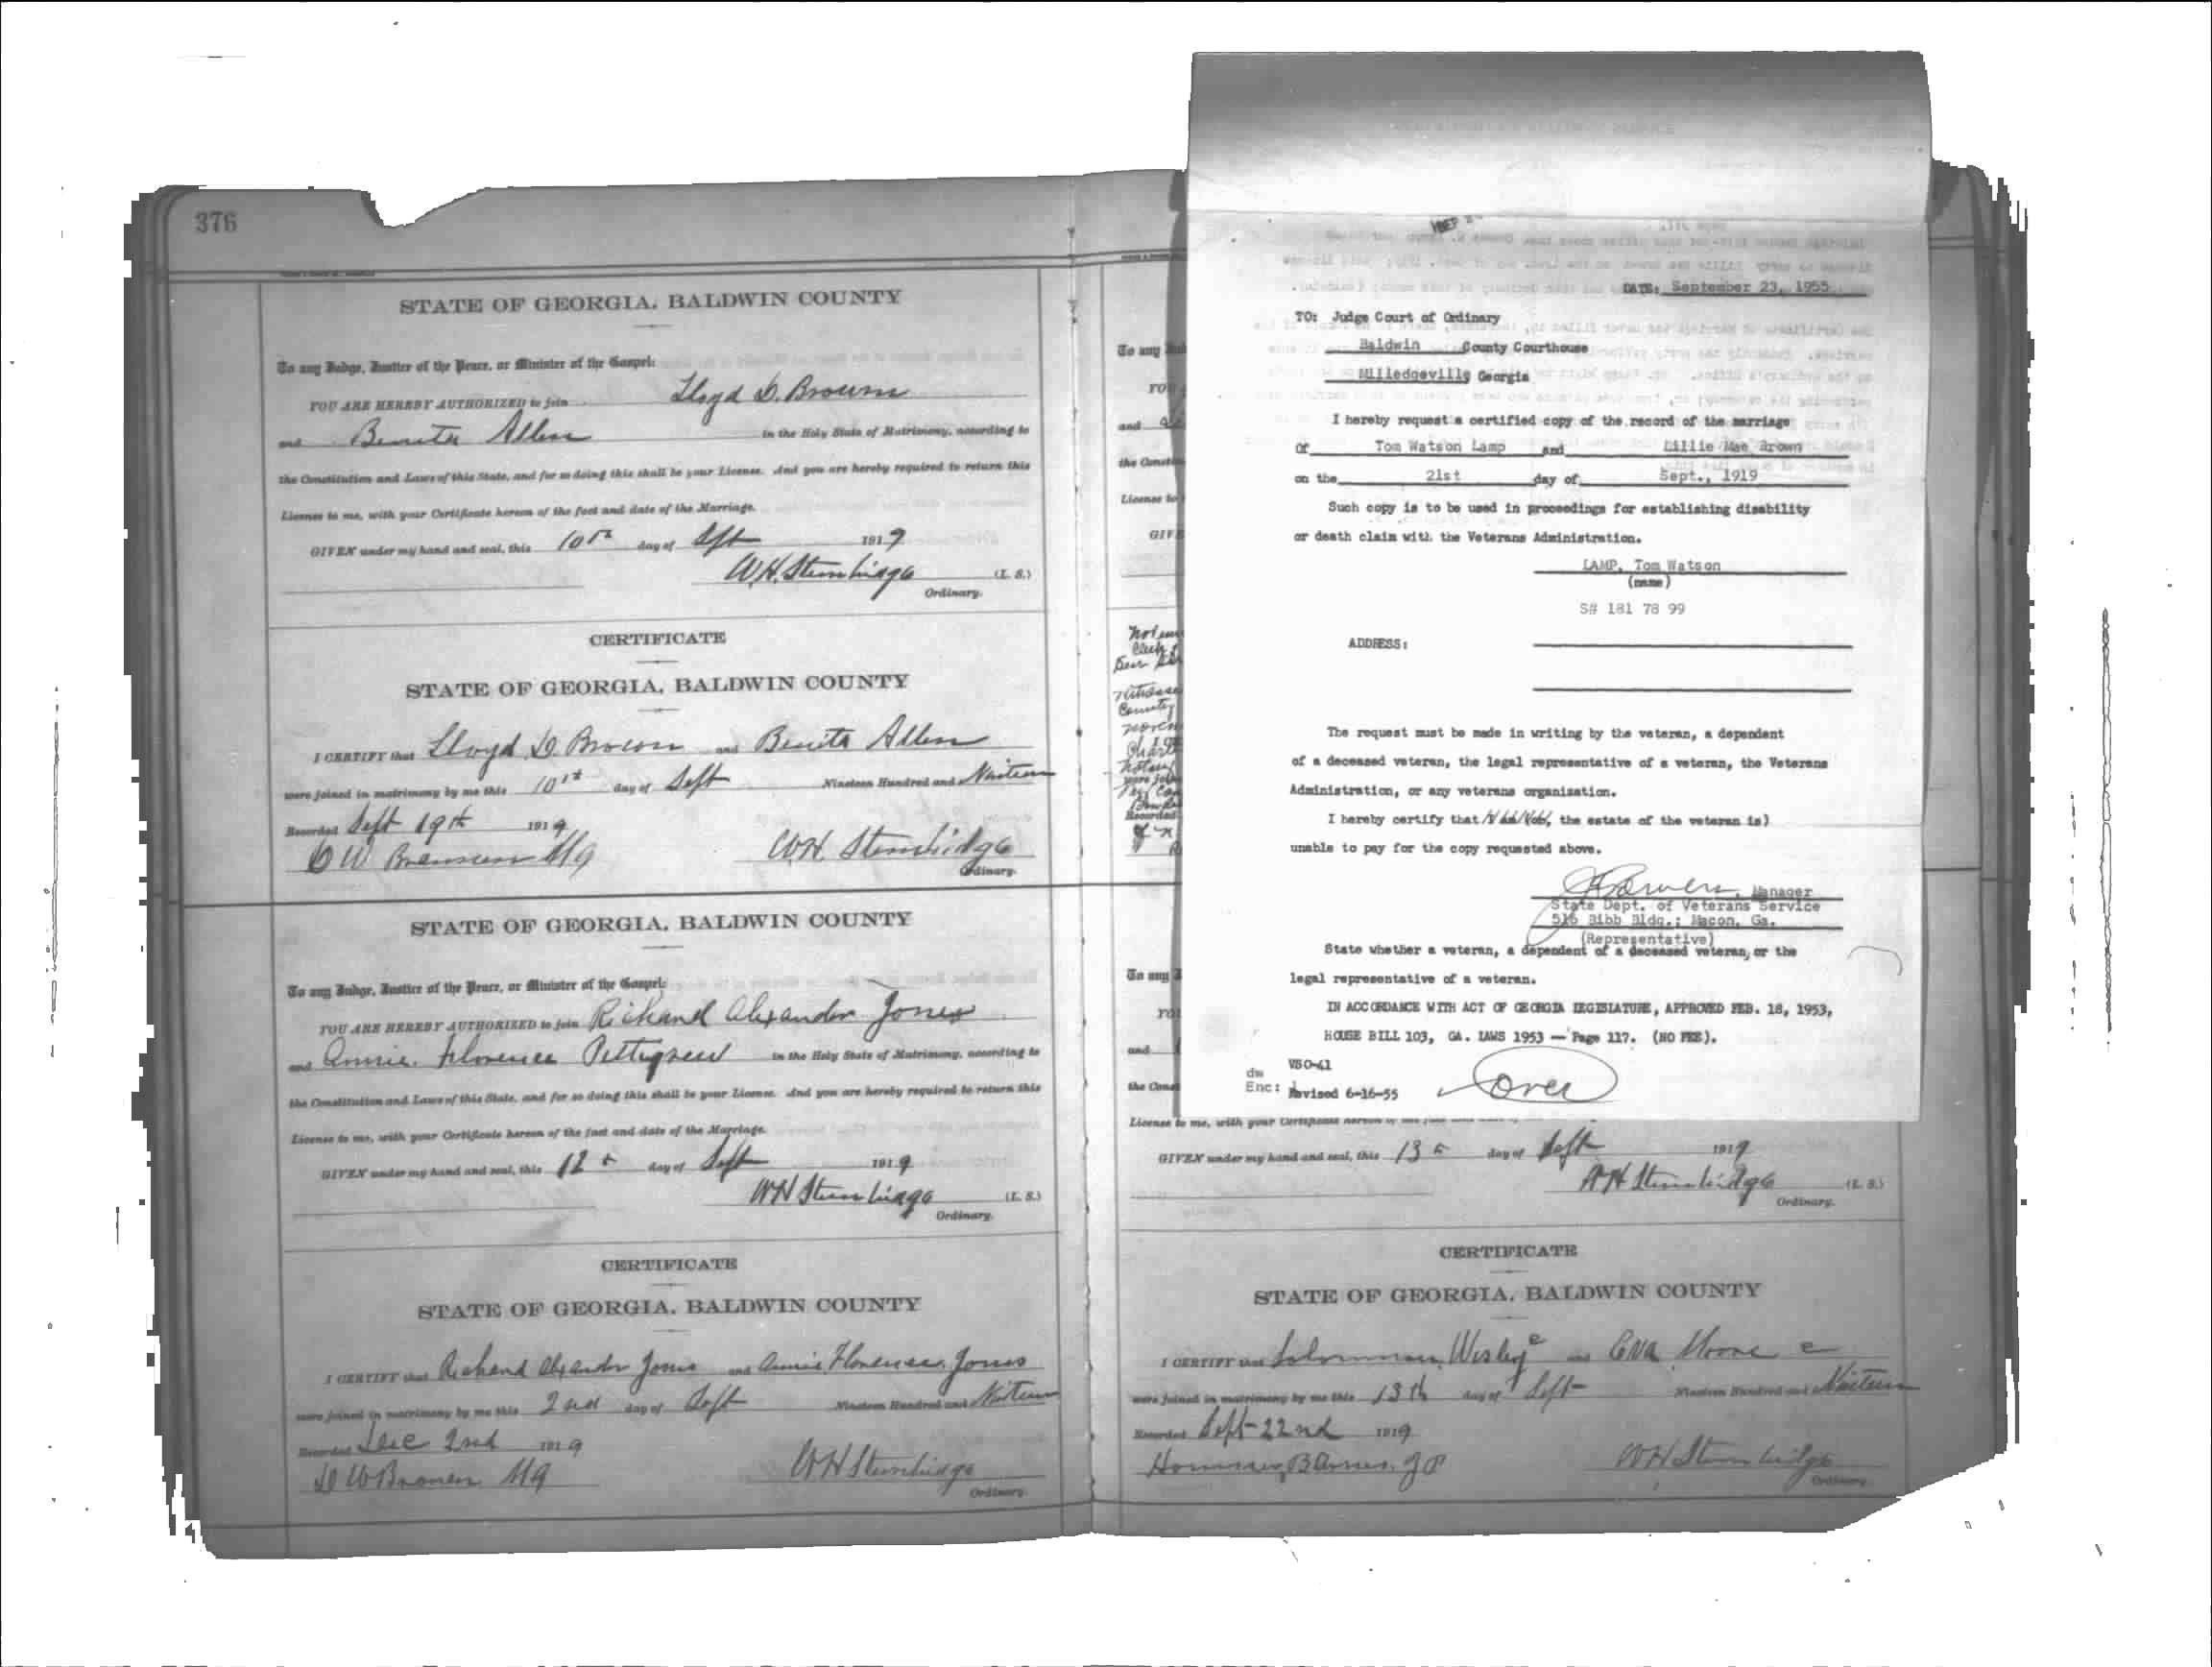 376
STATE OF GEORGIA, BALDWIN COUNTY
To any Judge, Justice of the Peace, or Minister of the Gospel:
YOU ARE HEREBY AUTHORIZED to join Lloyd D. Brown
and Benita Allen in the Holy State of Matrimony, according to
the Constitution and Laws of this State, and for so doing this shall be your License. And you are hereby required to return this
License to me, with your Certificate hereon of the fact and date of the Marriage.
GIVEN under my hand and seal, this 10th day of Sept 1919
W.H. Stembridge (L. S.)
Ordinary.
CERTIFICATE
STATE OF GEORGIA, BALDWIN COUNTY
I CERTIFY that Lloyd D. Brown and Benita Allen
were joined in matrimony by me this 10th day of Sept Nineteen Hundred and Nineteen
Recorded Sept 19th 1919
W.H. Stembridge
Ordinary.
STATE OF GEORGIA, BALDWIN COUNTY
To any Judge, Justice of the Peace, or Minister of the Gospel:
YOU ARE HEREBY AUTHORIZED to join Richard Alexander Jones
and Annie Florence Pettigrew in the Holy State of Matrimony, according to
the Constitution and Laws of this State, and for so doing this shall be your License. And you are hereby required to return this
License to me, with your Certificate hereon of the fact and date of the Marriage.
GIVEN under my hand and seal, this 12 day of Sept 1919
W H Stembridge (L. S.)
Ordinary.
CERTIFICATE
STATE OF GEORGIA, BALDWIN COUNTY
I CERTIFY that Richard Alexander Jones and Annie Florence Jones
were joined in matrimony by me this 2nd day of Sept Nineteen Hundred and Nineteen
Recorded Dec 2nd 1919
W H Stembridge
Ordinary.
DATE: September 23, 1955
TO: Judge Court of Ordinary
Baldwin County Courthouse
Milledgeville Georgia
I hereby request a certified copy of the record of the marriage
of Tom Watson Lamp and Lillie Mae Brown
on the 21st day of Sept., 1919
Such copy is to be used in proceedings for establishing disability
or death claim with the Veterans Administration.
LAMP, Tom Watson
(name)
S# 181 78 99
ADDRESS:
The request must be made in writing by the veteran, a dependent
of a deceased veteran, the legal representative of a veteran, the Veterans
Administration, or any veterans organization.
I hereby certify that the estate of the veteran is)
unable to pay for the copy requested above.
Manager
State Dept. of Veterans Service
516 Bibb Bldg.; Macon, Ga.
(Representative)
State whether a veteran, a dependent of a deceased veteran, or the
legal representative of a veteran.
IN ACCORDANCE WITH ACT OF GEORGIA LEGISLATURE, APPROVED FEB. 18, 1953,
HOUSE BILL 103, GA. LAWS 1953 — Page 117. (NO FEE).
dw VSO-41
Enc: 1 Revised 6-16-55 over
To any
and
the Const
License to
GIVE
To any
and
the Cons
License to me, with your Certificate hereon of the
GIVEN under my hand and seal, this 13 day of Sept 1919
W H Stembridge (L. S.)
Ordinary.
CERTIFICATE
STATE OF GEORGIA, BALDWIN COUNTY
I CERTIFY that Solomman Wesley c and Eva Moore c
were joined in matrimony by me this 13th day of Sept Nineteen Hundred and Nineteen
Recorded Sept 22nd 1919
Barnes. J P W H Stembridge
Ordinary.